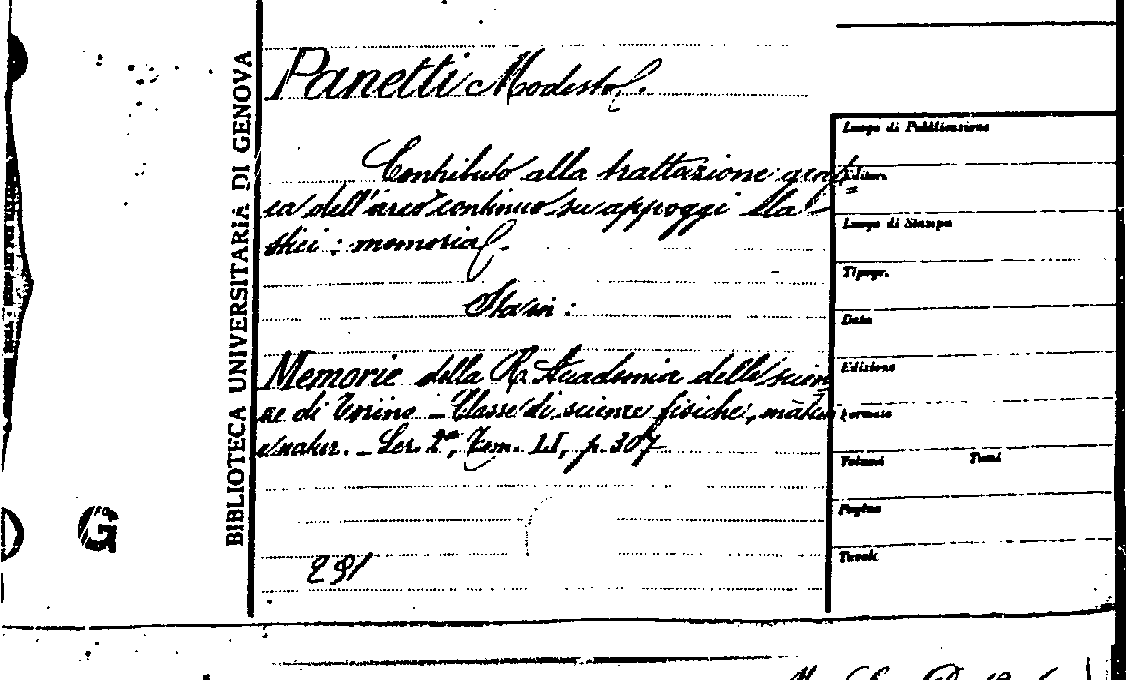 BIBLIOTECA UNIVERSITARIA DI GENOVA
Panetti Modesto.
Contributo alla trattazione grafi=
ca dell'arco continuo su appoggi ela-
stici: memoria.
Stavi:
Memorie della R. Accademia delle scien
ze di Torino - Classe di scienze fisiche, matem
e natur. - Ser. 2ª, Tom. LI, p. 307
291
Luogo di Pubblicazione
Editore
Luogo di Stampa
Tipogr.
Data
Edizione
Formato
Volumi Tomi
Pagine
Tavole
G